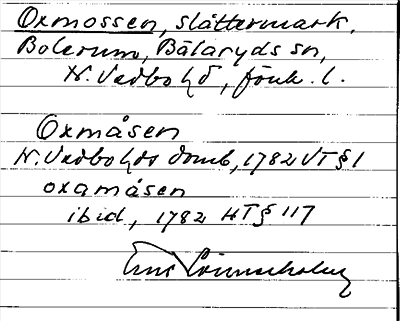 Oxmossen, slåttermark.
Bolerum, Bälaryds sn,
N. Vedbo hd, Jönk. l.
Oxmåsen
N. Vedbo hds domb, 1782 VT § 1
oxamåsen
ibid, 1782 HT § 117